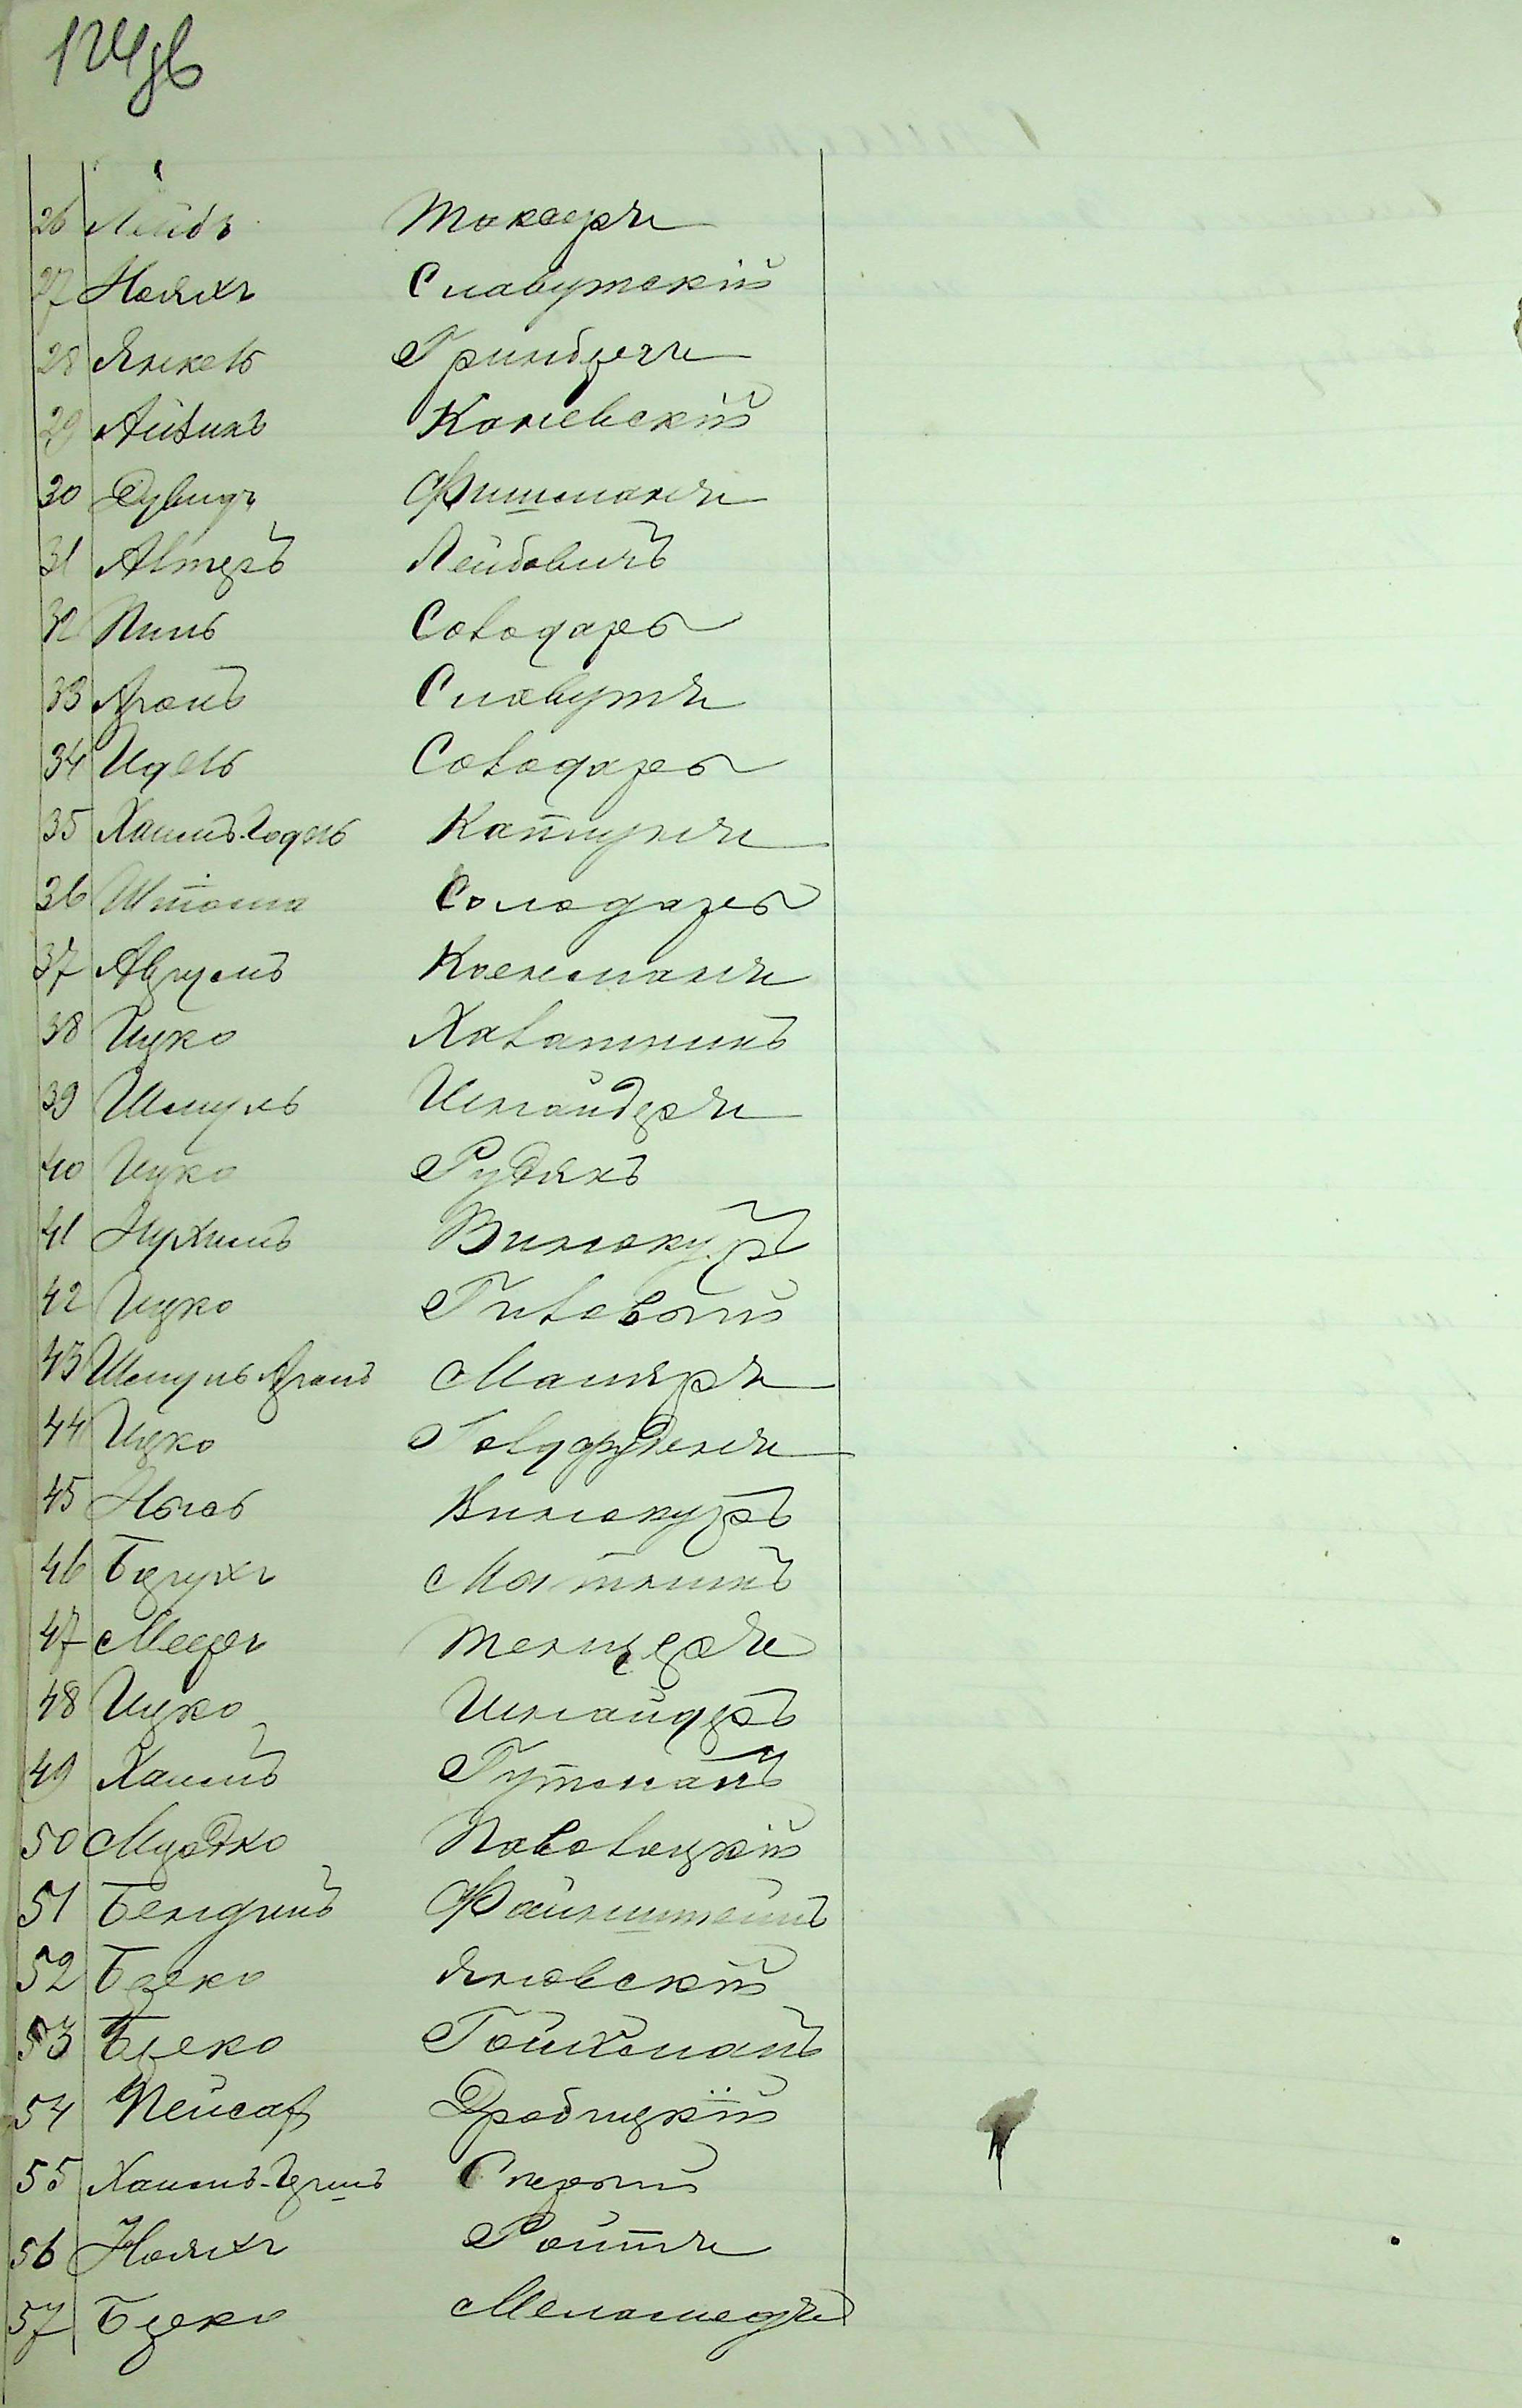 124об
26 Лейбъ Токаръ
27 Нояхъ Славутскій
28 Янкель Гринбергъ
29 Айзикъ Каневскій
30 Дувидъ Фишманъ
31 Алтеръ Лейбовичъ
32 Пиль Солодарь
33 Аронъ Славутъ
34 Идель Солодарь
35 Хаимъ-Годель Каплунъ
36 Шлома Солодарь
37 Аврумъ Коенманъ
38 Ицко Халатникъ
39 Шмуль Шнайдеръ
40 Ицко Рудякъ
41 Нухимъ Винокуръ
42 Ицко Гиловый
43 Шмуль Аронъ Маляръ
44 Ицко Голдфудинъ
45 Нысь Винокуръ
46 Борухъ Мытникъ
47 Мееръ Тенцеръ
48 Ицко Шнайдеръ
49 Хаимъ Гутманъ
50 Мордко Паволоцкій
51 Бенджинъ Файнштейнъ
52 Берко Яновскій
53 Берко Гойхманъ
54 Пейсах Дробицкій
55 Хаимъ-Гершъ Старый
56 Нояхъ Ройтъ
57 Берко Меламедъ